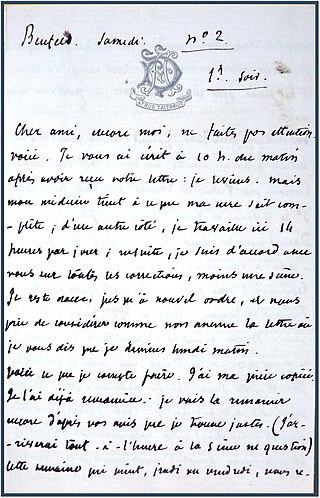 Benfeld. Samedi. No. 2
1h soir.
57 RUE TAITBOUT
Cher ami, encore moi; ne faites pas attention
voici. Je vous ai écrit à 10 h. du matin
après avoir reçu votre lettre: je reviens. mais
mon médecin tient à ce que ma cure soit com-
plète; d'un autre côté, je travaille ici 14
heures par jour; ensuite, je suis d'accord avec
vous sur toutes les corrections, moins une scène.
Je reste donc, jusqu'à nouvel ordre, et vous
prie de considérer comme non avenue la lettre où
je vous dis que je reviens lundi matin.
Voici ce que je compte faire. J'ai ma pièce copiée.
Je l'ai déjà remaniée. je vais la remanier
encore d'après vos avis que je trouve justes. (J'ar-
riverai tout-à-l'heure à la scène en question)
Cette semaine qui vient, jeudi ou vendredi, vous re-